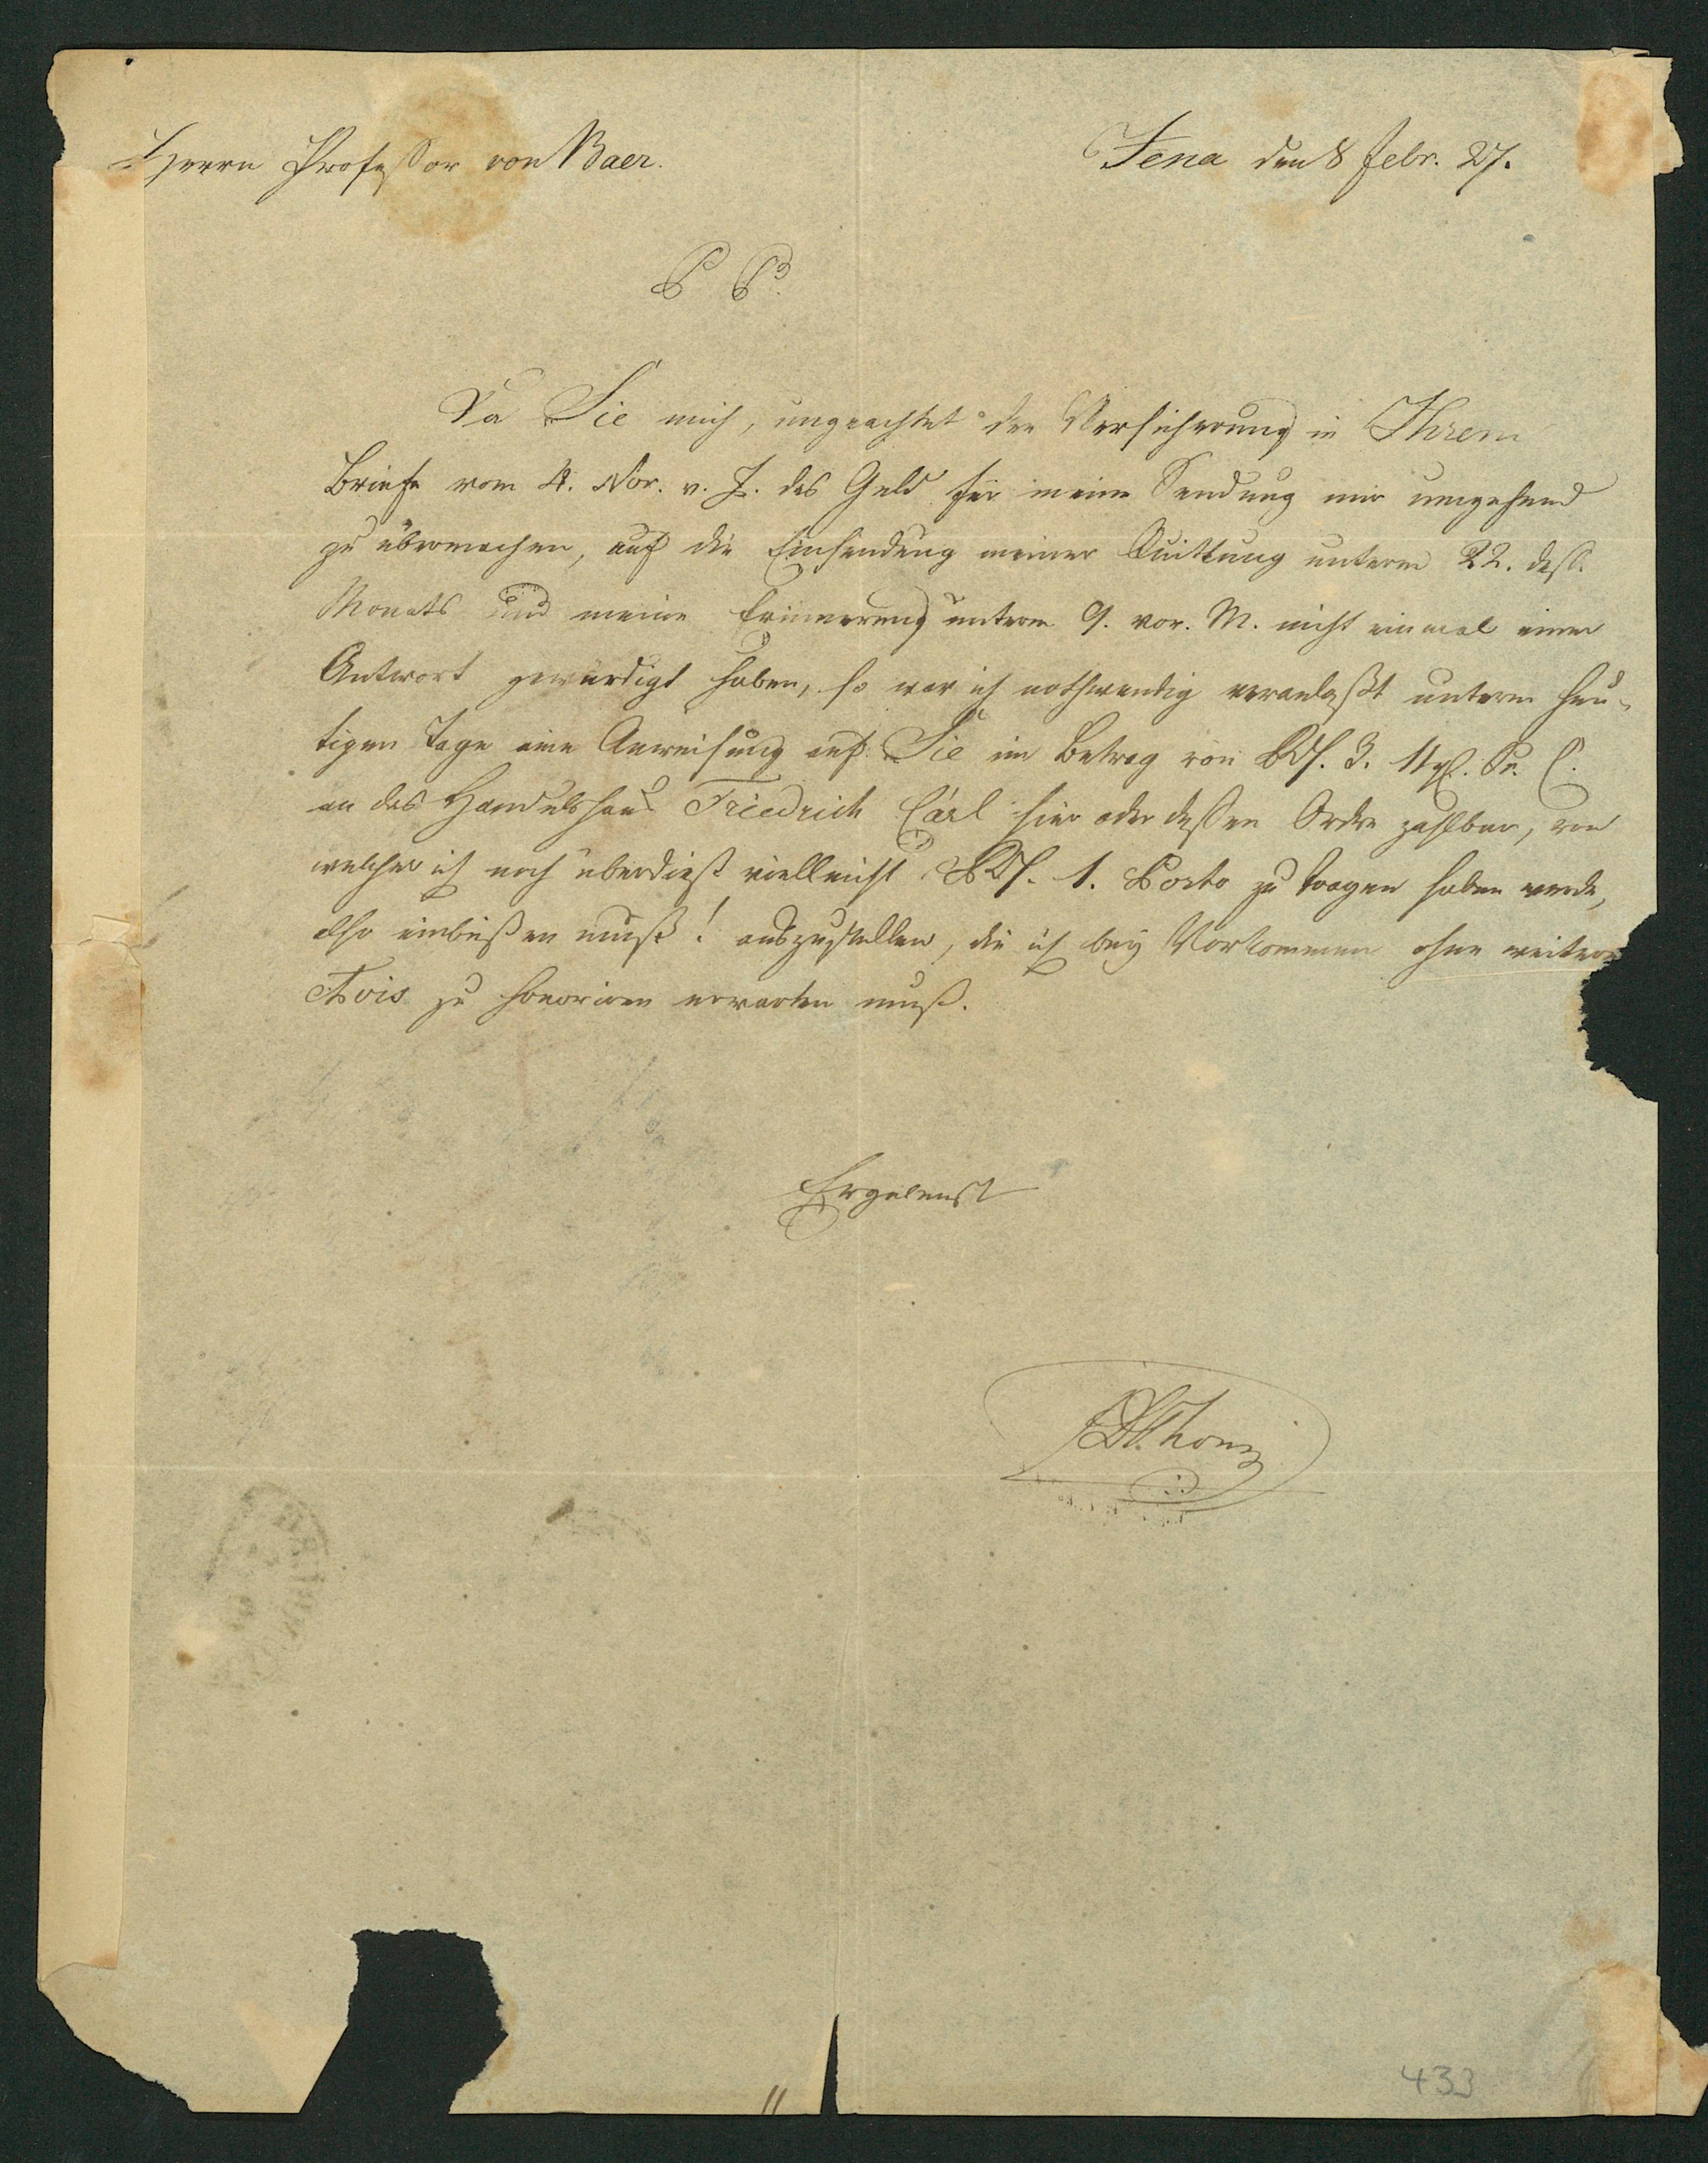 Herrn Professor von Baer.
Jena den 8 Febr. 27.
P P.
Da Sie mich, ungeachtet der Versicherung in Ihrem
Briefe vom 4. Nov. v. J. das Geld für meine Sendung mir umgehend
zu übermachen, auf die Einsendung meiner Quittung unterm 22. dess.
Monats und meine Erinnerung unterm 9. vor. M. nicht einmal einer
Antwort gewürdigt haben, so war ich nothwendig veranlaßt unterm heu-
tigen Tage eine Anweisung auf Sie im Betrag von 3.
an das Handelshaus Friedrich Carl hier oder dessen Ordre zahlbar, von
welcher ich noch überdieß vielleicht 1. Porto zu tragen haben werde,
also einbüßen muß! auszustellen, die ich bey Vorkommen ohne weitere
Avis zu honoriren erwarten muß.
Ergebenst
Thon
433